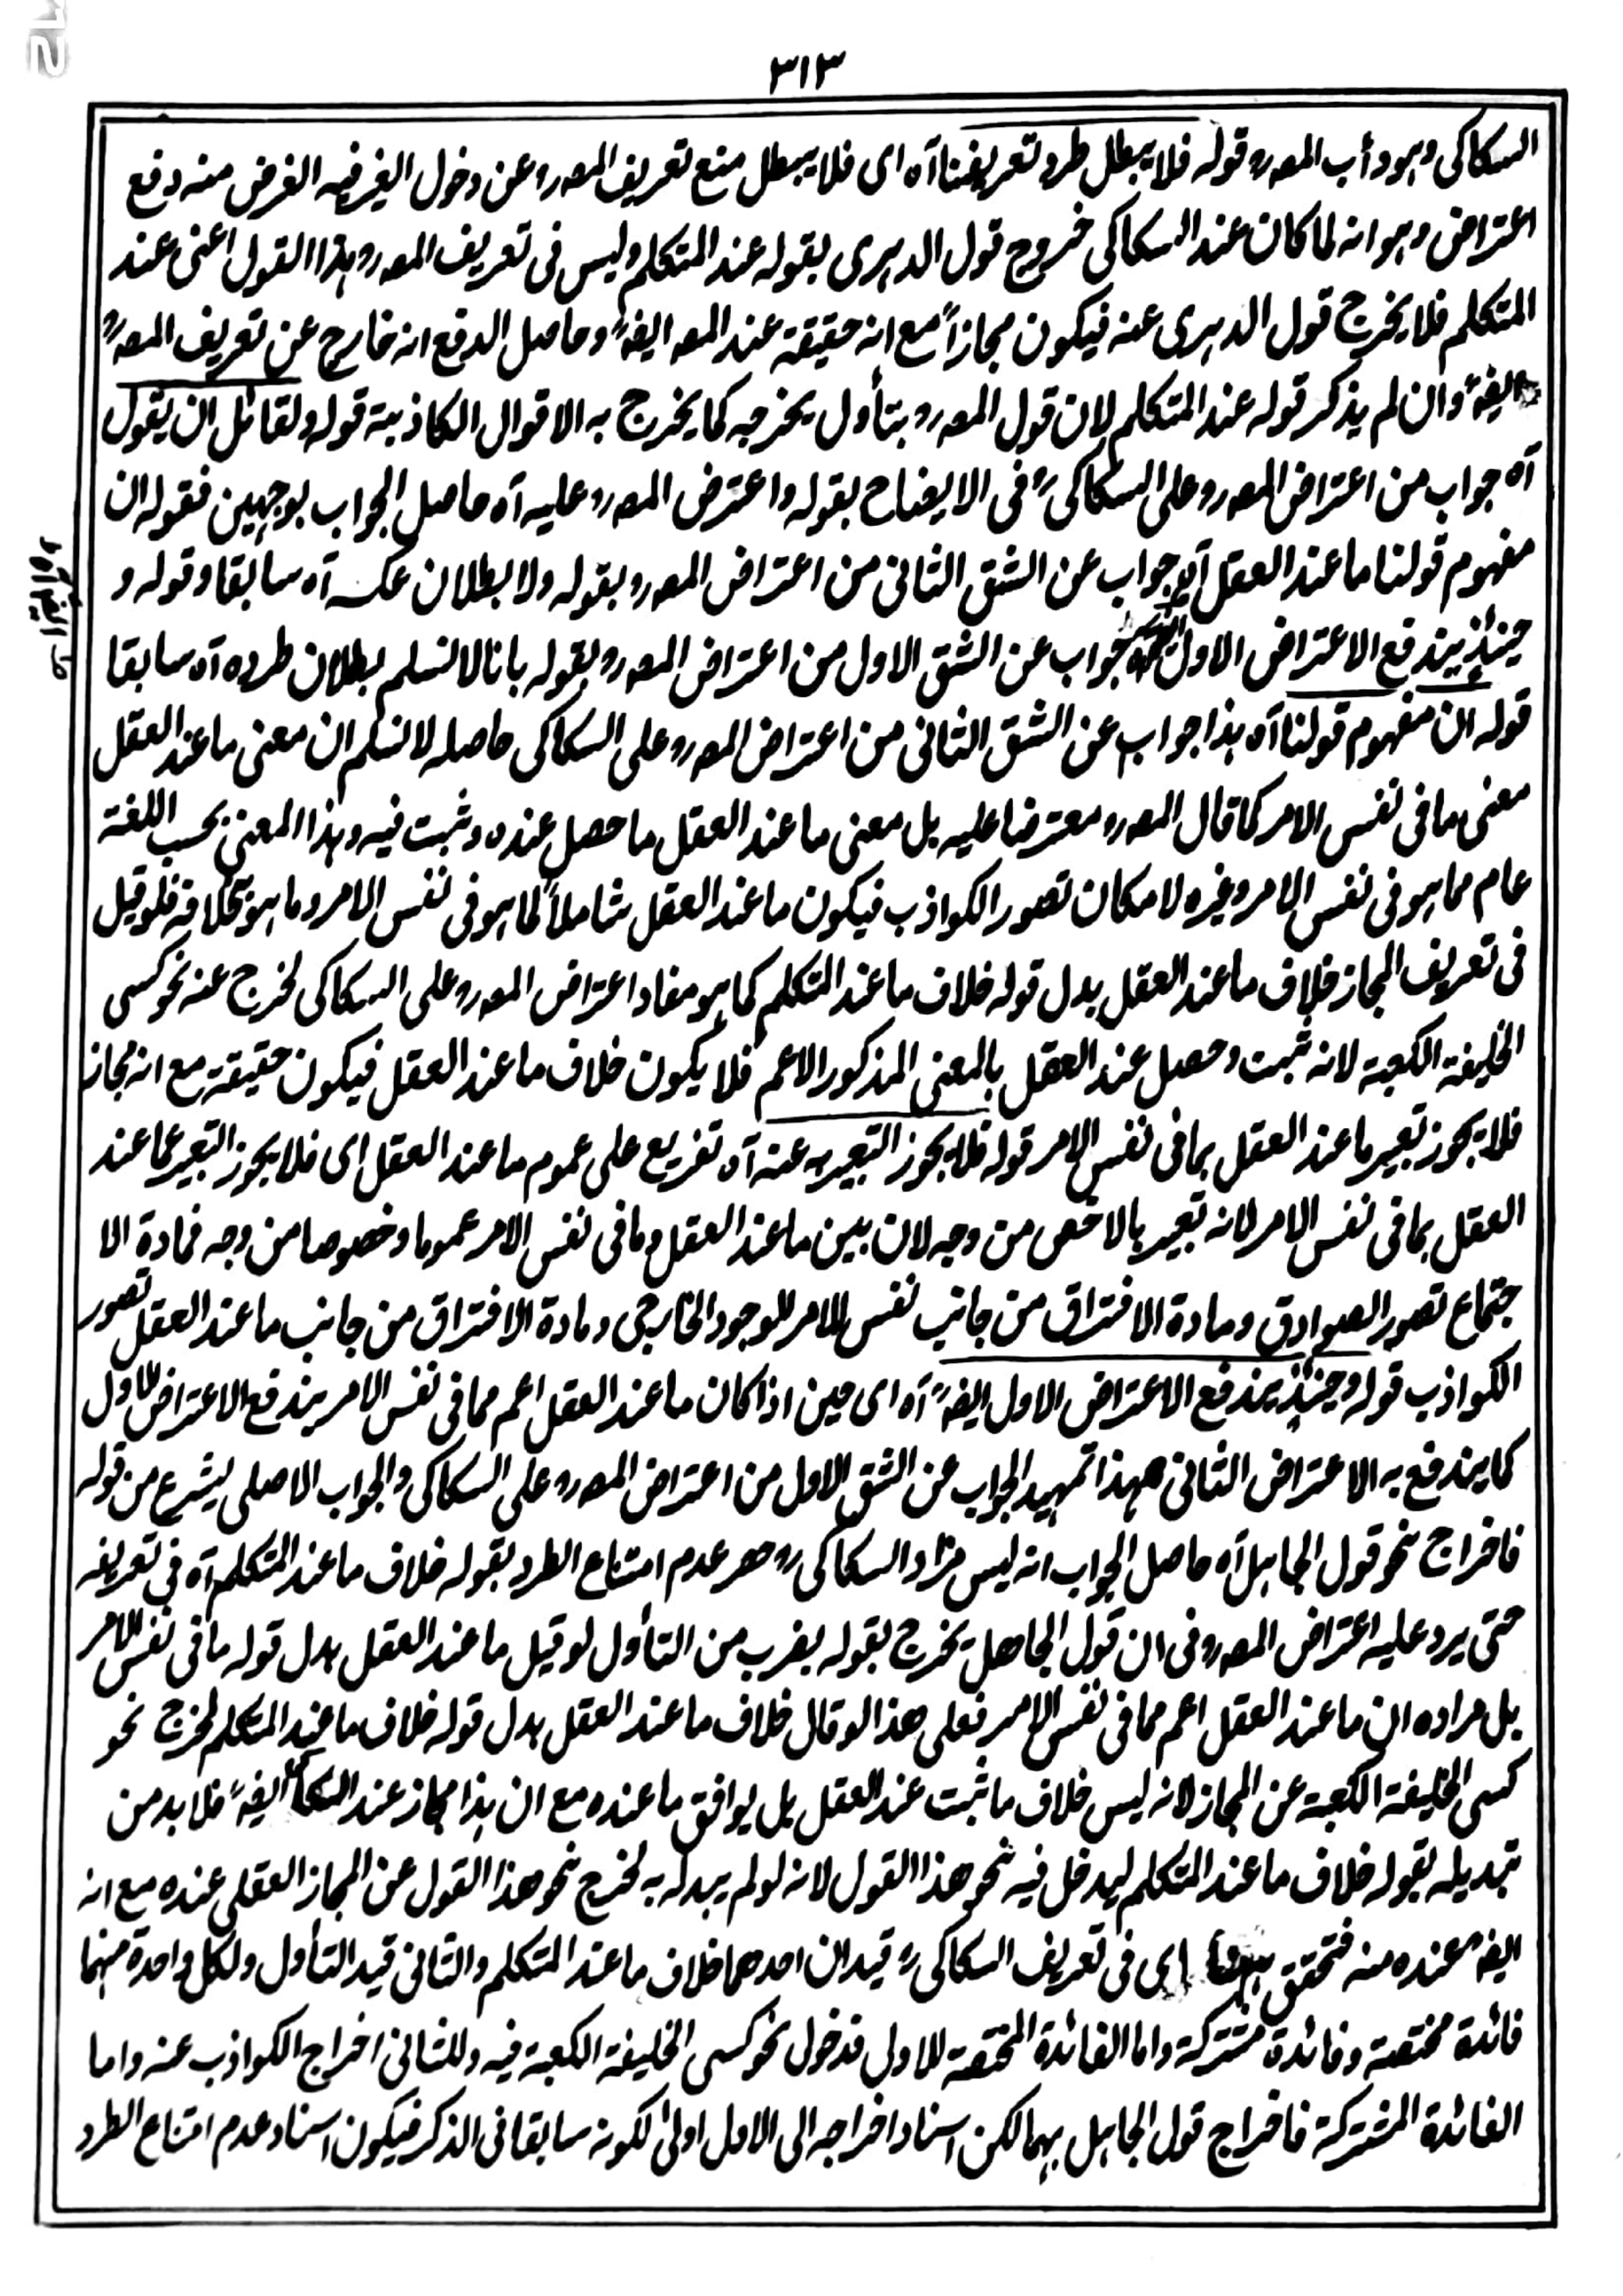 ٣١٣
السکاکی وہو دأب المصؒ قولہ فلا یبطل طرد تعریفنا آہ ای فلا یبطل منع تعریف المصؒ عن دخول الغیر فیہ الغرض منہ دفع
اعتراض وہو انہ لما کان عند السکاکی خروج قول الدہری بقولہ عند المتکلم ولیس فی تعریف المصؒ ہذا القول اعنی عند
المتکلم فلا یخرج قول الدہری عنہ فیکون مجازاً مع انہ حقیقۃ عند المصؒ ایضاً وحاصل الدفع انہ خارج عن تعریف المصؒ
ایضاً وان لم یذکر قولہ عند المتکلم لان قول المصؒ بتأول یخرجہ کما یخرج بہ الاقوال الکاذبۃ قولہ ولقائل ان یقول
آہ جواب من اعتراض المصؒ علی السکاکیؒ فی الایضاح بقولہ واعترض المصؒ علیہ آہ حاصل الجواب بوجہین فقولہ ان
مفہوم قولنا ما عند العقل آہ جواب عن الشق الثانی من اعتراض المصؒ بقولہ ولا بطلان عکسہ آہ سابقا وقولہ و
حینئذٍ یندفع الاعتراض الاول جواب عن الشق الاول من اعتراض المصؒ بقولہ بانا لا نسلم بطلان طردہ آہ سابقا
قولہ ان مفہوم قولنا آہ ہذا جواب عن الشق الثانی من اعتراض المصؒ علی السکاکی حاصلہ لا نسلم ان معنی ما عند العقل
معنی ما فی نفس الامر کما قال المصؒ معترضا علیہ بل معنی ما عند العقل ما حصل عندہ وثبت فیہ وہذا المعنی بحسب اللغۃ
عام مما ہو فی نفس الامر وغیرہ لامکان تصور الکواذب فیکون ما عند العقل شاملاً لما ہو فی نفس الامر وما ہو بخلافہ فلو قیل
فی تعریف المجاز خلاف ما عند العقل بدل قولہ خلاف ما عند المتکلم کما ہو مفاد اعتراض المصؒ علی السکاکی لخرج عنہ نحو کسی
الخلیفۃ الکعبۃ لانہ ثبت وحصل عند العقل بالمعنی المذکور الاعم فلا یکون خلاف ما عند العقل فیکون حقیقۃ مع انہ مجاز
فلا یجوز تعبیر ما عند العقل بما فی نفس الامر قولہ فلا یجوز التعبیر بہ عنہ آہ تفریع علی عموم ما عند العقل ای فلا یجوز التعبیر عما عند
العقل بما فی نفس الامر لانہ تعبیر بالاخص من وجہ لان بین ما عند العقل وما فی نفس الامر عموما وخصوصا من وجہ فمادۃ الا
جتماع تصور الصوادق ومادۃ الافتراق من جانب نفس الامر الموجود الخارجی ومادۃ الافتراق من جانب ما عند العقل تصور
الکواذب قولہ وحینئذٍ یندفع الاعتراض الاول ایضاً آہ ای حین اذا کان ما عند العقل اعم مما فی نفس الامر یندفع الاعتراض الاول
کما یندفع بہ الاعتراض الثانی ہذا تمہید الجواب عن الشق الاول من اعتراض المصؒ علی السکاکی والجواب الاصلی یشرع من قولہ
فاخراج نحو قول الجاہل آہ حاصل الجواب انہ لیس مراد السکاکیؒ حصر عدم امتناع الطرد بقولہ خلاف ما عند المتکلم آہ فی تعریفہ
حتی یرد علیہ اعتراض المصؒ فی ان قول الجاهل یخرج بقولہ بضرب من التأول لو قیل ما عند العقل بدل قولہ ما فی نفس الامر
بل مرادہ ان ما عند العقل اعم مما فی نفس الامر فعلی هذا لو قال خلاف ما عند العقل بدل قولہ خلاف ما عند المتکلم لخرج نحو
کسی الخلیفۃ الکعبۃ عن المجاز لانہ لیس خلاف ما ثبت عند العقل بل یوافق ما عندہ مع ان ہذا مجاز عند السکاکی ایضاً فلا بد من
تبدیلہ بقولہ خلاف ما عند المتکلم لیدخل فیہ نحو هذا القول لانہ لو لم یبدل بہ لخرج نحو هذا القول عن المجاز العقلی عندہ مع انہ
ایضاً عندہ منہ فتحقق ای فی تعریف السکاکیؒ قیدان احدهما خلاف ما عند المتکلم والثانی قید التأول ولکل واحدۃ منہما
فائدۃ مختصۃ وفائدۃ مشترکۃ واما الفائدۃ المختصۃ للاول فدخول نحو کسی الخلیفۃ الکعبۃ فیہ وللثانی اخراج الکواذب عنہ واما
الفائدۃ المشترکۃ فاخراج قول الجاہل بہما لکن اسناد اخراجہ الی الاول اولیٰ لکونہ سابقا فی الذکر فیکون اسناد عدم امتناع الطرد